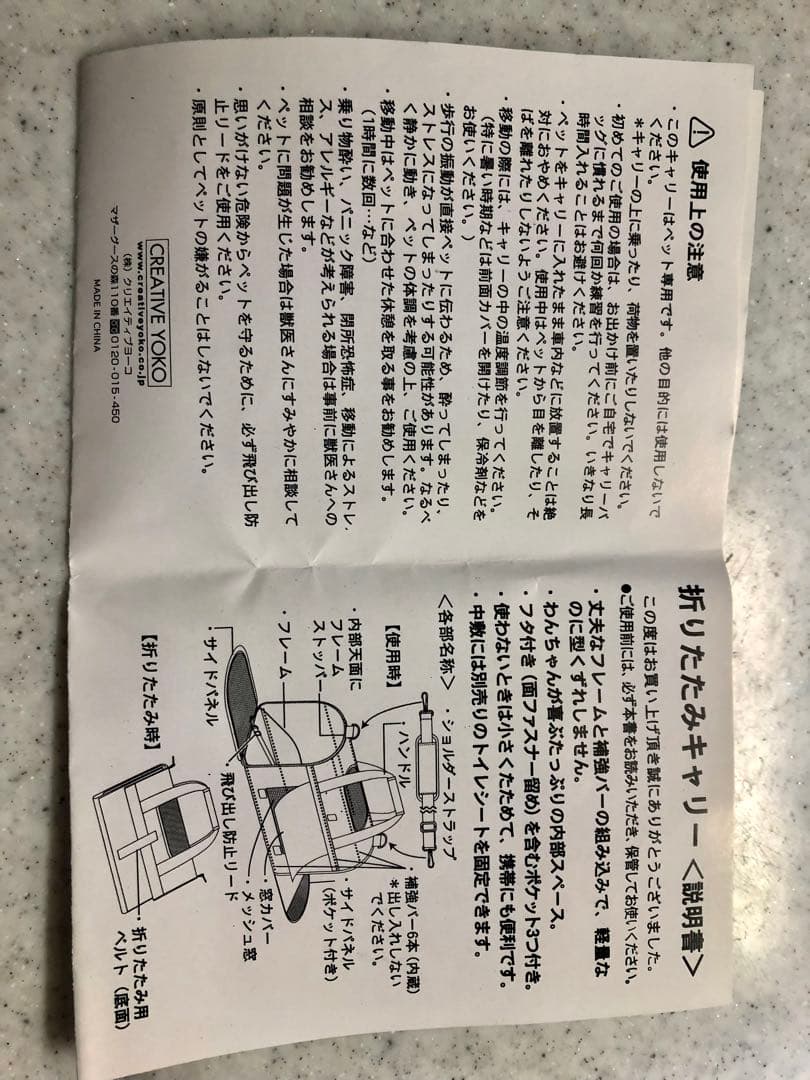 折りたたみキャリー<説明書>
この度はお買い上げ頂き誠にありがとうございました。
●ご使用前には、必ず本書をお読みいただき、保管してお使いください。
・丈夫なフレームと補強バーの組み込みで、軽量な
のに型くずれしません。
・わんちゃんが喜ぶたっぷりの内部スペース。
・フタ付き(面ファスナー留め)を含むポケット3つ付き。
・使わないときは小さくたためて、携帯にも便利です。
・中敷には別売りのトイレシートを固定できます。
<各部名称>
・ショルダーストラップ
【使用時】
・ハンドル
・内部天面に
フレーム
ストッパー
・フレーム
・サイドパネル
・補強バー6本(内蔵)
*出し入れしない
でください。
・サイドパネル
(ポケット付き)
・窓カバー
・メッシュ窓
飛び出し防止リード
【折りたたみ時】
・折りたたみ用
ベルト(底面)
使用上の注意
・このキャリーはペット専用です。他の目的には使用しないで
ください。
*キャリーの上に乗ったり、荷物を置いたりしないでください。
・初めてのご使用の場合は、お出かけ前にご自宅でキャリーバ
ッグに慣れるまで何回か練習を行ってください。いきなり長
時間入れることはお避けください。
・ペットをキャリーに入れたまま車内などに放置することは絶
対におやめください。使用中はペットから目を離したり、そ
ばを離れたりしないようご注意ください。
・移動の際には、キャリーの中の温度調節を行ってください。
(特に暑い時期などは前面カバーを開けたり、保冷剤などを
お使いください。)
・歩行の振動が直接ペットに伝わるため、酔ってしまったり、
ストレスになってしまったりする可能性があります。なるべ
く静かに動き、ペットの体調を考慮の上、ご使用ください。
・移動中はペットに合わせた休憩を取る事をお勧めします。
(1時間に数回…など)
・乗り物酔い、パニック障害、閉所恐怖症、移動によるストレ
ス、アレルギーなどが考えられる場合は事前に獣医さんへの
相談をお勧めします。
・ペットに問題が生じた場合は獣医さんにすみやかに相談して
ください。
・思いがけない危険からペットを守るために、必ず飛び出し防
止リードをご使用ください。
・原則としてペットの嫌がることはしないでください。
CREATIVE YOKO
www.creativeyoko.co.jp
(株)クリエイティブヨーコ
マザーグースの森110番 0120-015-450
MADE IN CHINA